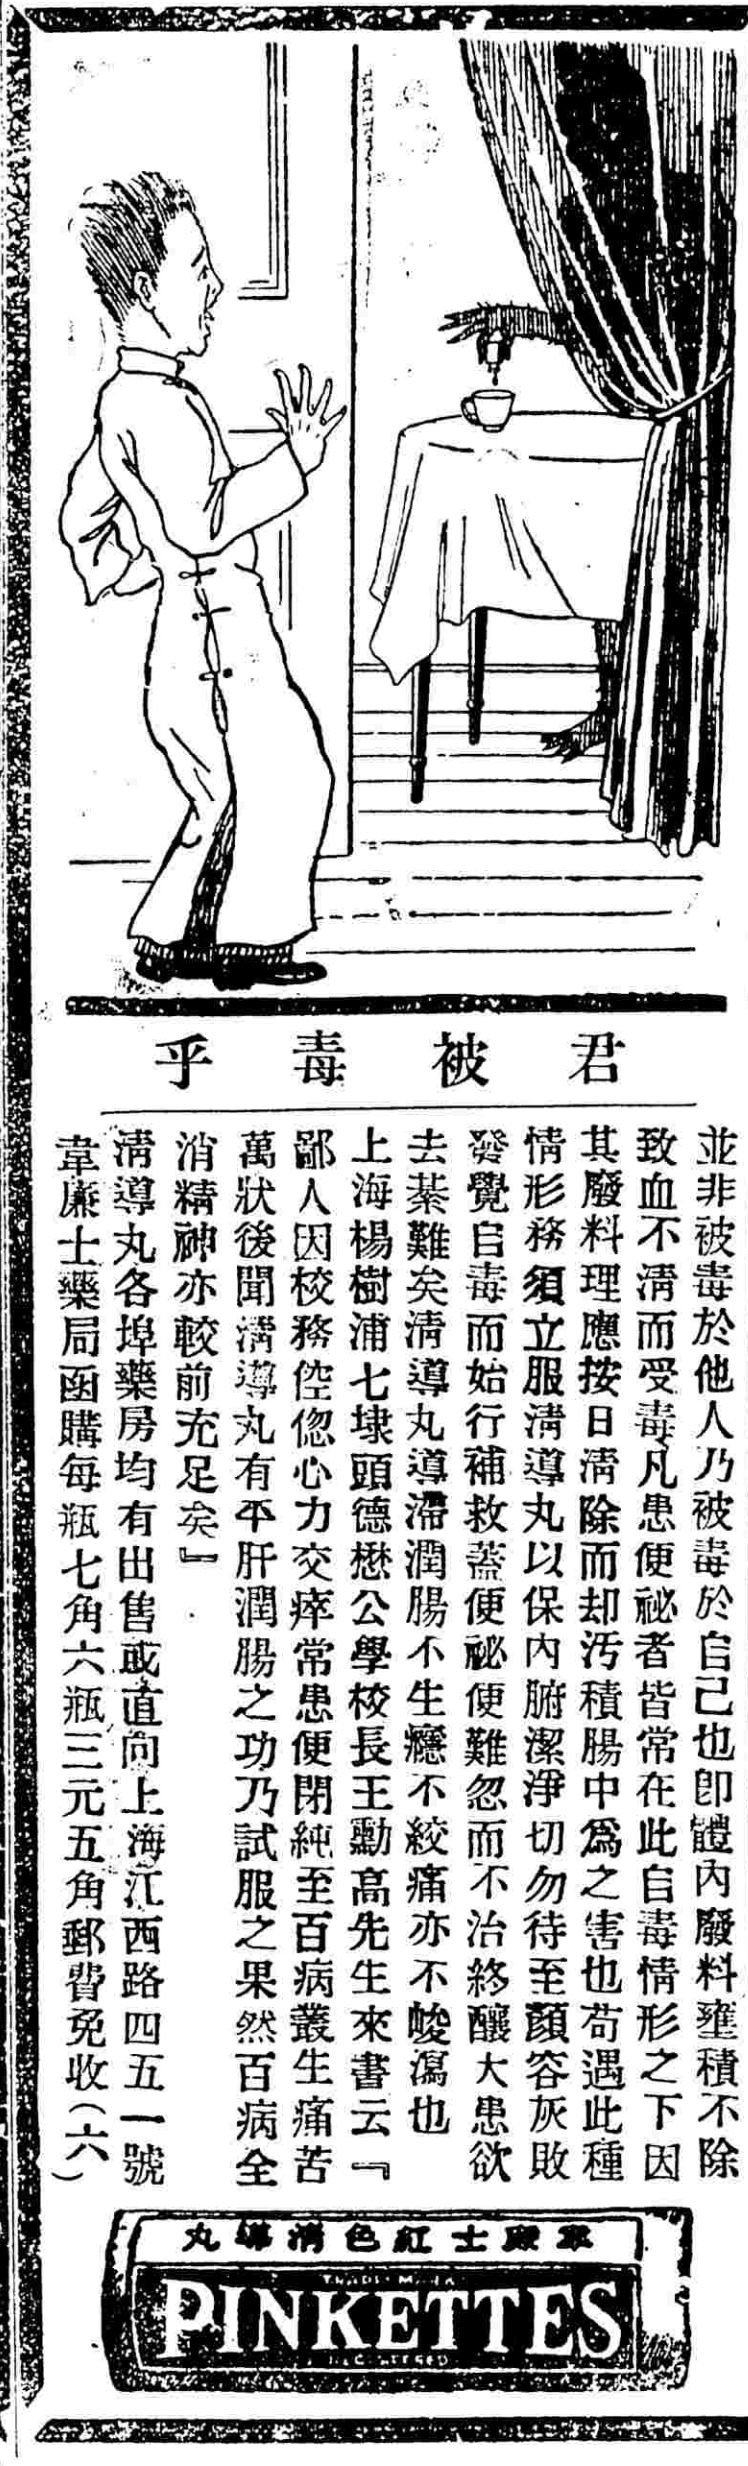 君被毒乎
並非被毒於他人乃被毒於自己也卽體內廢料壅積不除
致血不清而受毒凡患便祕者皆常在此自毒情形之下因
其廢料理應按日清除而却汚積腸中爲之害也苟遇此種
情形務須立服清導丸以保內腑潔淨切勿待至顏容灰敗
發覺自毒而始行補救蓋便祕便難忽而不治終釀大患欲
去綦難矣清導丸導滯潤腸不生癮不絞痛亦不峻瀉也
上海楊樹浦七埭頭德懋公學校長王勳高先生來書云『
鄙人因校務倥偬心力交瘁常患便閉純至百病叢生痛苦
萬狀後聞清導丸有平肝潤腸之功乃試服之果然百病全
消精神亦較前充足矣』
清導丸各埠藥房均有出售或直向上海江西路四五一號
韋廉士藥局函購每瓶七角六瓶三元五角郵費免收(六)
韋廉士紅色清導丸
TRADE MARK
PINKETTES